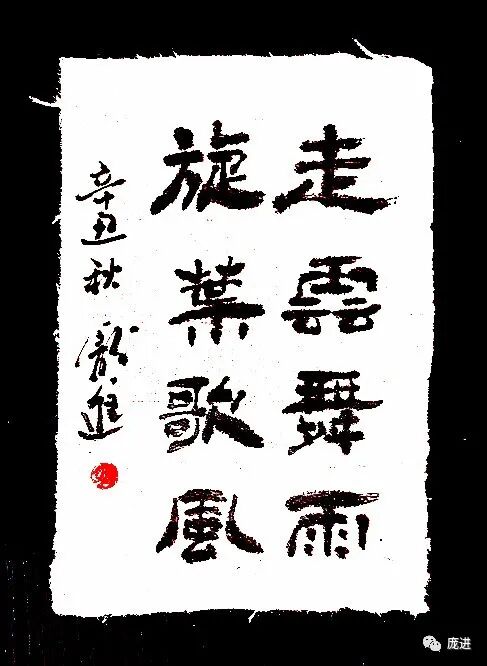 走雲舞雨
旋葉歌風
辛丑秋 龐進
庞进